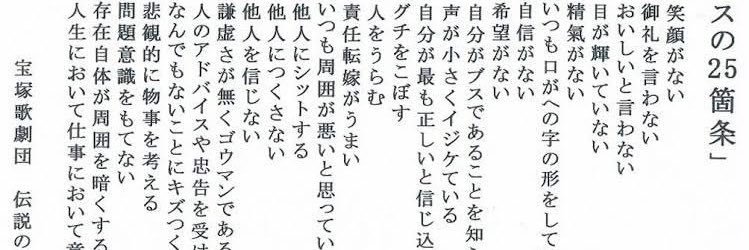 スの25箇条」
笑顔がない
御礼を言わない
おいしいと言わない
目が輝いていない
精氣がない
いつも口がへの字の形をして
自信がない
希望がない
自分がブスであることを知
声が小さくイジケている
自分が最も正しいと信じ込
グチをこぼす
人をうらむ
責任転嫁がうまい
いつも周囲が悪いと思ってい
他人にシットする
他人につくさない
他人を信じない
謙虚さが無くゴウマンである
人のアドバイスや忠告を受け
なんでもないことにキズつく
悲観的に物事を考える
問題意識をもてない
存在自体が周囲を暗くする
人生において仕事において意
宝塚歌劇団 伝説の